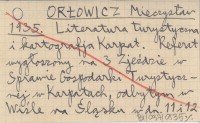 O ORŁOWICZ Mieczysław
1935. Literatura turystyczna
i kartografja Karpat. Referat
wygłoszony na 3 Zjeździe w
Sprawie Gospodarki Turystycz-
nej w Karpatach odbytym w
Wiśle na Śląsku w dn. 11 i 12